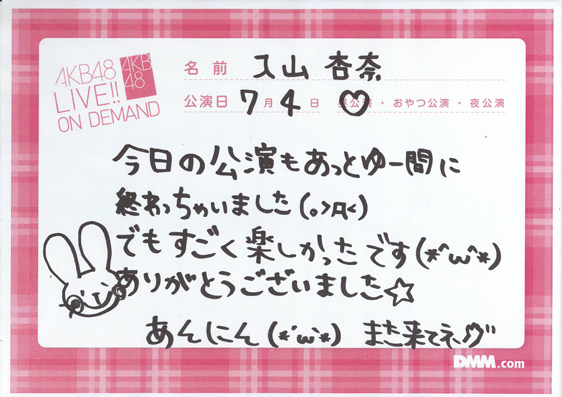 AKB48
LIVE!!
ON DEMAND
AKB
48
名前 入山 杏奈
公演日 7月4日 ♡公演・おやつ公演・夜公演
今日の公演もあっとゆー間に
終わっちゃいました(｡>д<)
でもすごく楽しかったです(*^ω^*)
ありがとうございました☆
あんにん(*´ω`*) また来てネ
DMM.com